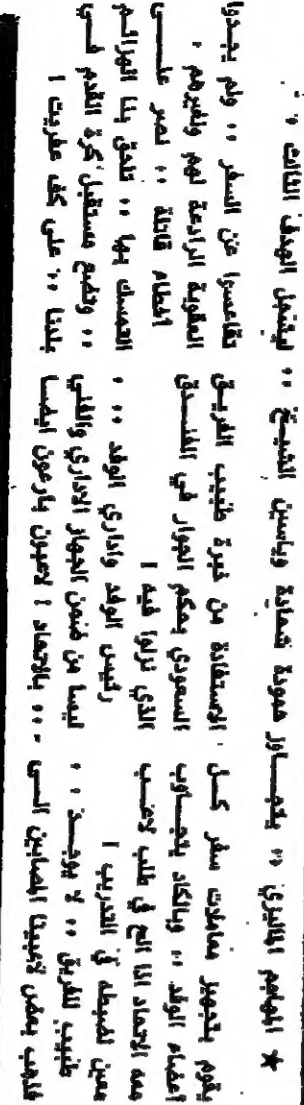 ★ المهاجم الماليزي .. يتجاوز حمودة شحادة وياسين الشيخ .. ليسجل الهدف الثالث ..
يقوم بتجهيز معاملات سفر كل
أعضاء الوفد .. وبالكاد يتجاوب
معه الاتحاد اذا الح في طلب لاعب
معين لضبطه في التدريب !
طبيب للفريق .. لا يوجد ..
فذهب بعض لاعبينا المصابين الى
الاستفادة من خبرة طبيب الفريق
السعودي بحكم الجوار في الفندق
الذي نزلوا فيه !
رئيس الوفد واداري الوفد ..
ليسا من ضمن الجهاز الاداري والفني
... بالاتحاد ! لاعبون بارعون ايضا
تقاعسوا عن السفر .. ولم يجدوا
العقوبة الرادعة لهم ولغيرهم .
أخطاء قاتلة .. نصر على
التمسك بها .. تلحق بنا الهزائم
.. وتضع مستقبل كرة القدم في
بلدنا .. على كف عفريت !